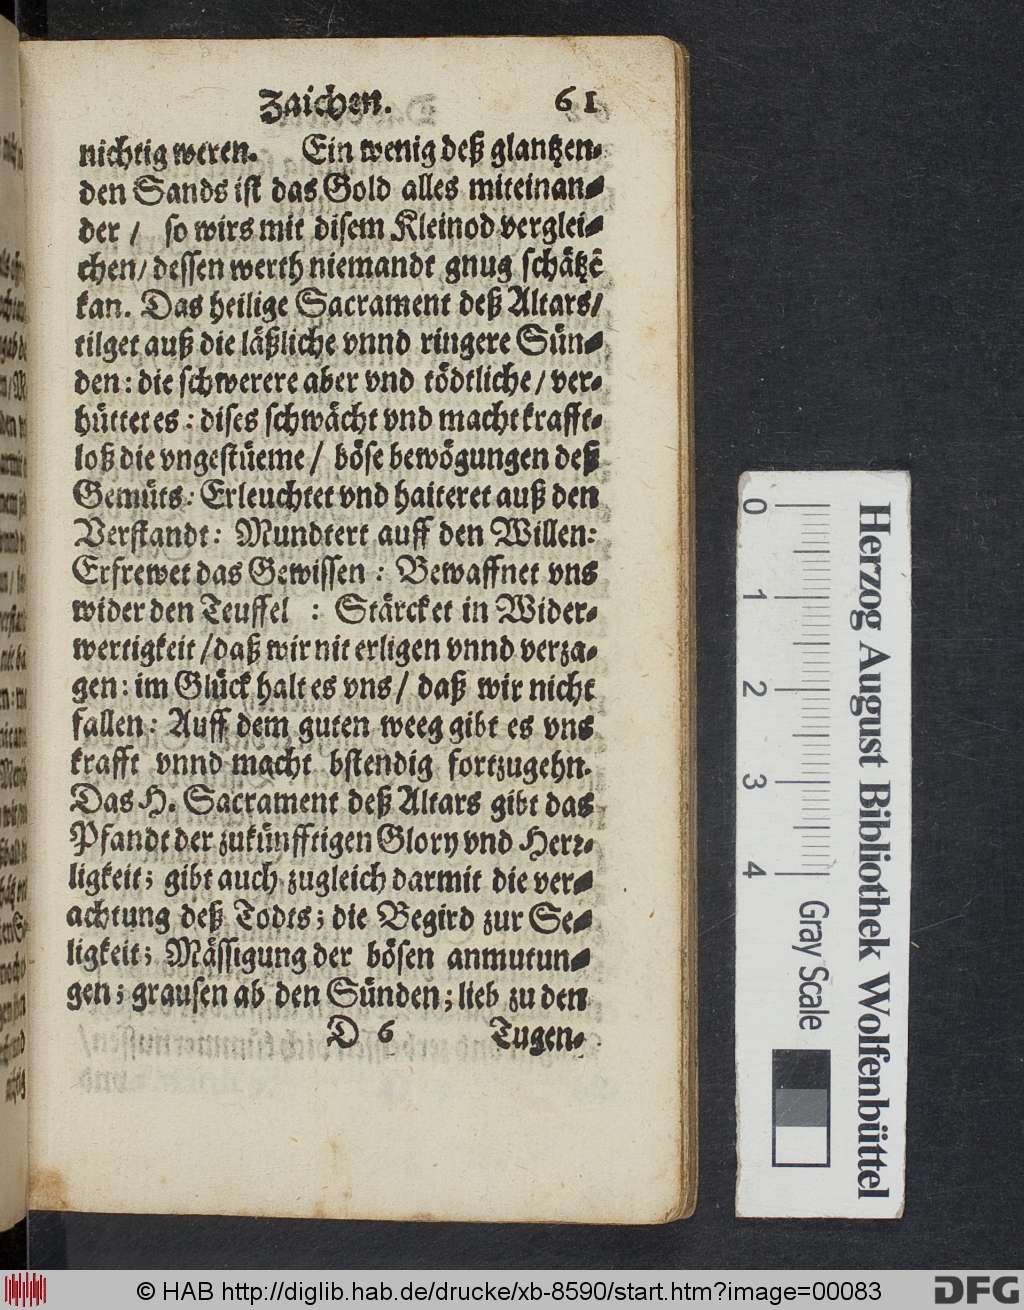 Zaichen. 61
nichtig weren. Ein wenig deß glantzen⸗
den Sands ist das Gold alles miteinan⸗
der / so wirs mit disem Kleinod verglei⸗
chen / dessen werth niemandt gnug schätzẽ
kan. Das heilige Sacrament deß Altars /
tilget auß die läßliche vnnd ringere Sün⸗
den: die schwerere aber vnd tödtliche / ver⸗
hüttet es: dises schwächt vnd macht krafft⸗
loß die vngestüeme / böse bewögungen deß
Gemüts: Erleuchtet vnd haiteret auß den
Verstandt: Mundtert auff den Willen:
Erfrewet das Gewissen: Bewaffnet vns
wider den Teuffel : Stärcket in Wider⸗
wertigkeit / daß wir nit erligen vnnd verza⸗
gen: im Glück halt es vns / daß wir nicht
fallen: Auff dem guten weeg gibt es vns
krafft vnnd macht bstendig fortzugehn.
Das H. Sacrament deß Altars gibt das
Pfandt der zukünfftigen Glory vnd Herr⸗
ligkeit; gibt auch zugleich darmit die ver⸗
achtung deß Todts; die Begird zur Se⸗
ligkeit; Mässigung der bösen anmutun⸗
gen; grausen ab den Sünden; lieb zu den
D 6 Tugen⸗
0 1 2 3 4
Gray Scale
Herzog August Bibliothek Wolfenbüttel
© HAB http://diglib.hab.de/drucke/xb-8590/start.htm?image=00083
DFG